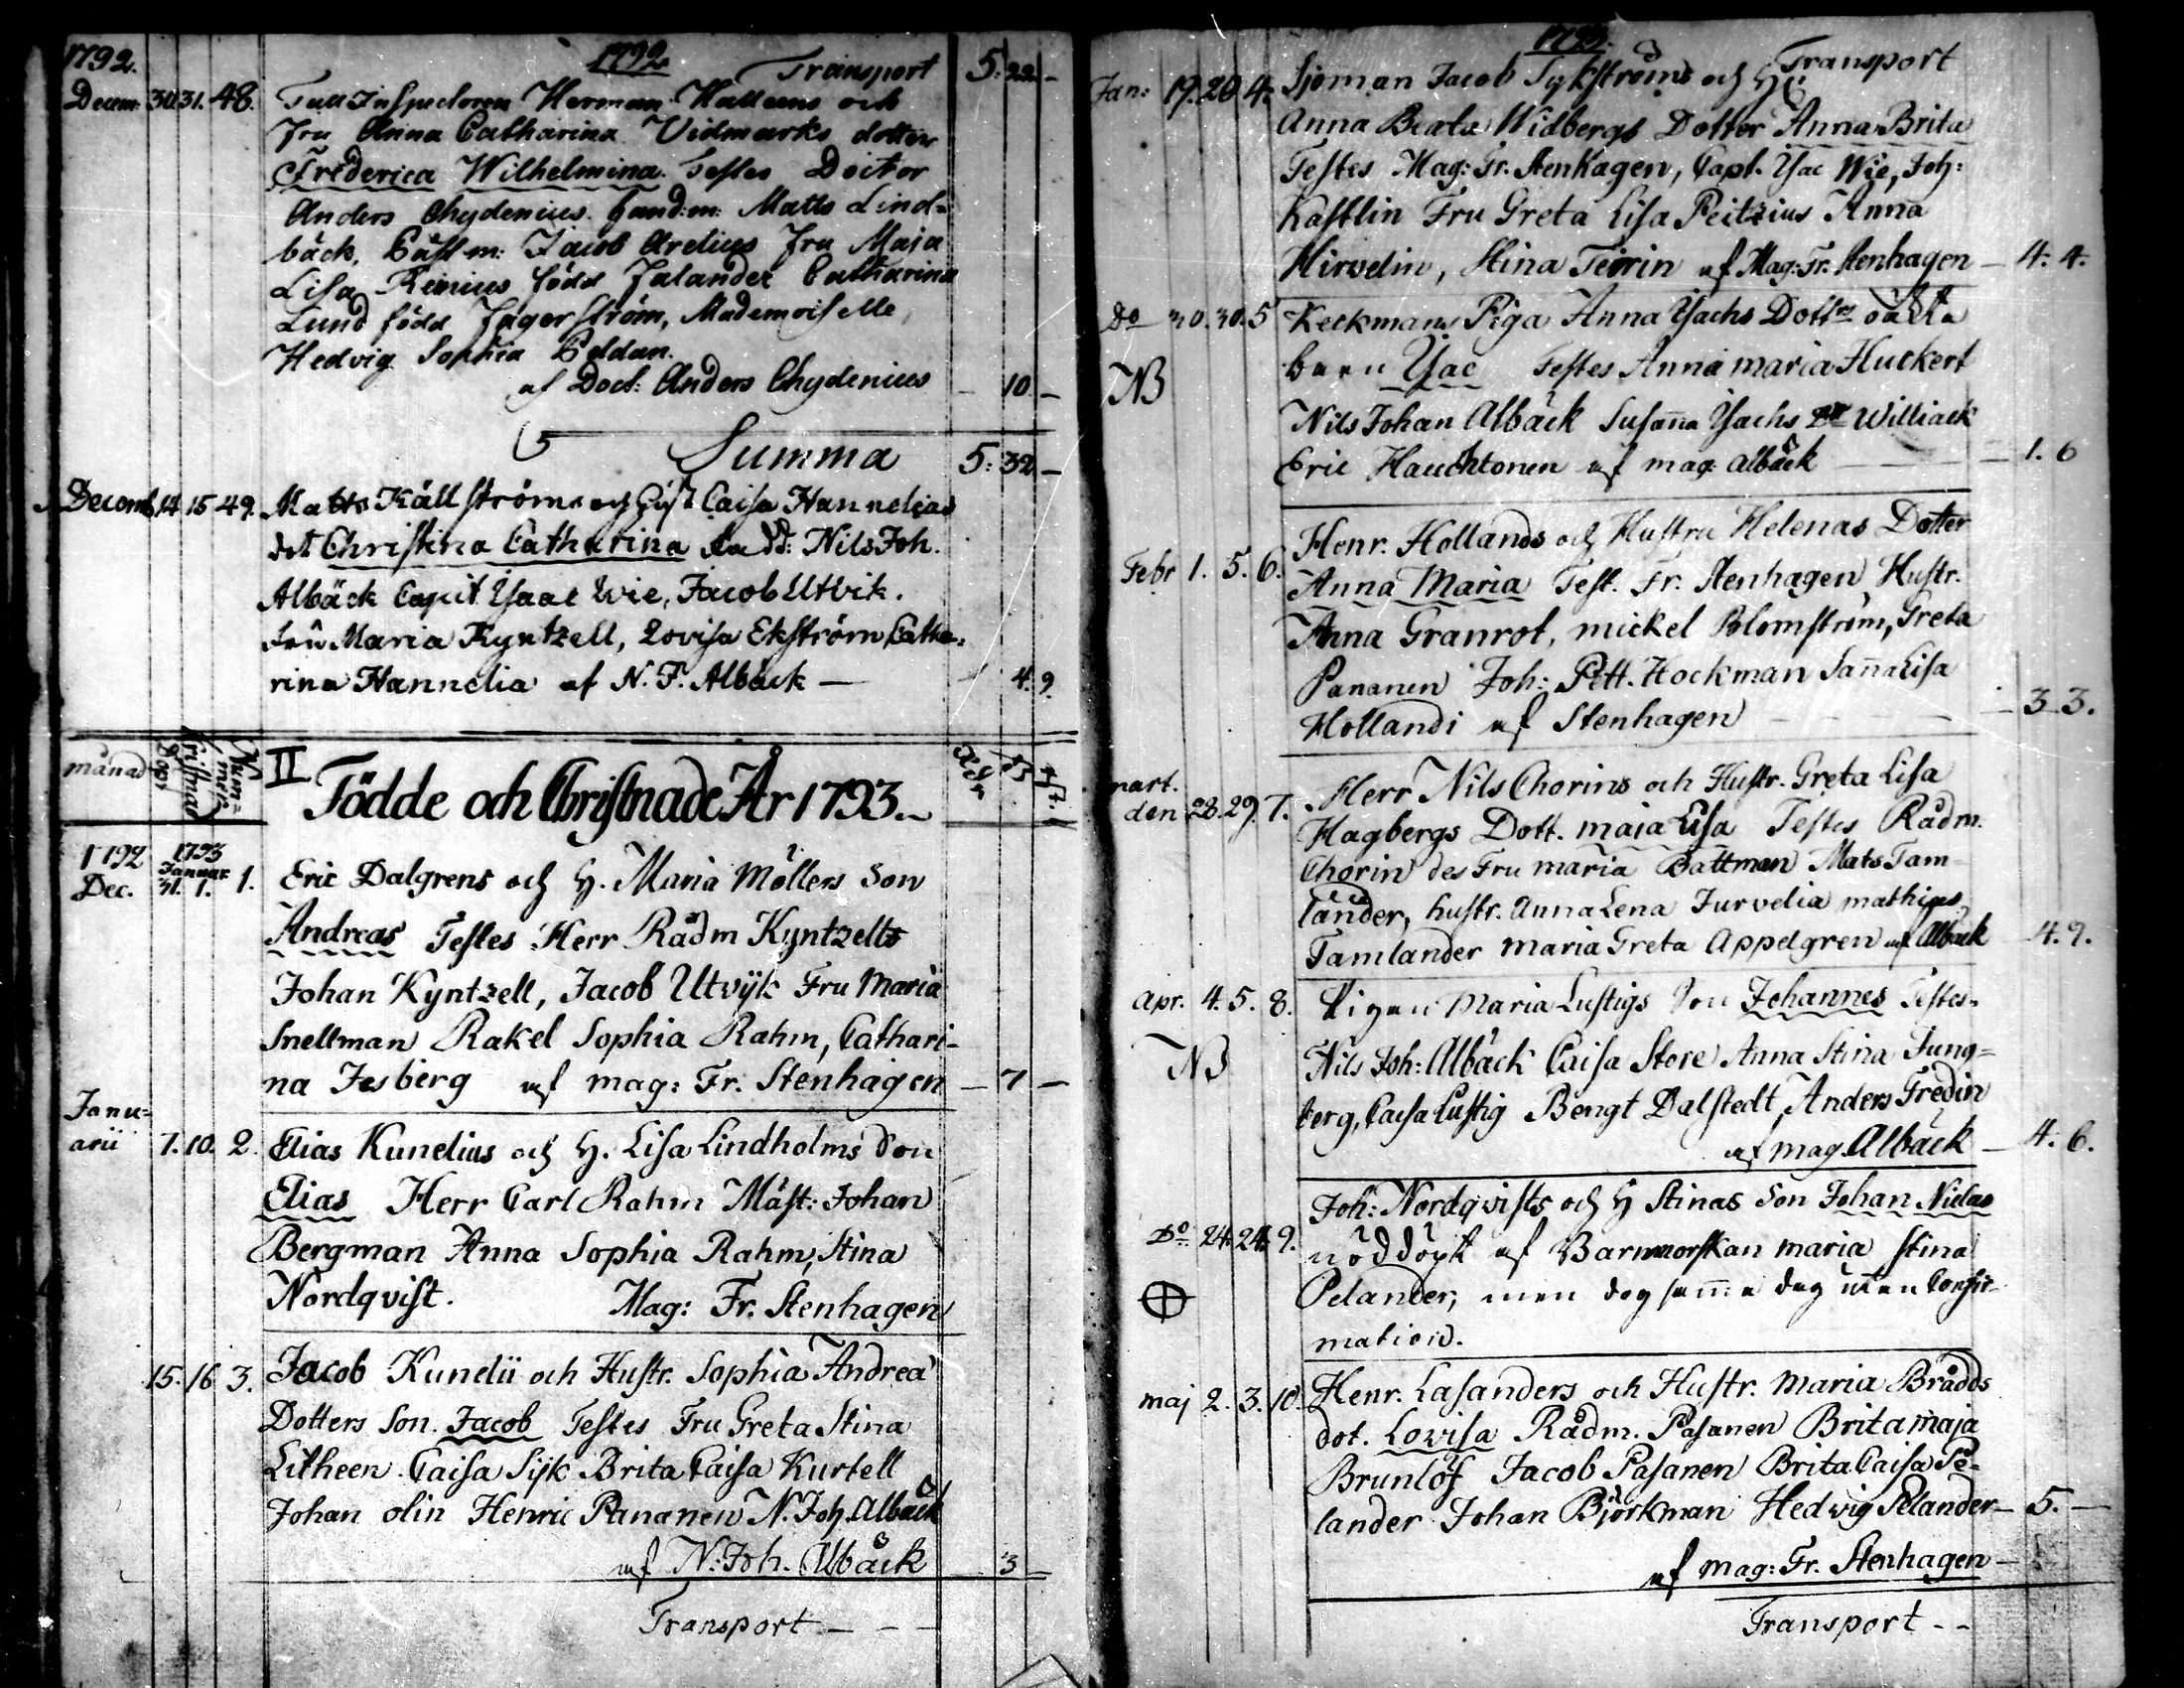 1792.
1792 Transport 5: 22 -
Decem: 30. 31. 48. Inspectoren Herman Hallens och
fru Anna Catharina Vidmarks dotter
Frederica Wilhelmina. Testes Doctor
Anders Chydenius. Hand:m: Matts Lind-
bäck, Jacob Arelius fru Maja
Lisa Reinius född Falander Catharina
Lund född Jagerström, Mademoiselle
Hedvig Sophia Peldan.
af Doct: Anders Chydenius - 10 -
Summa 5: 32 -
Decemb 14 15 49. Matts Källströms och Hust Caisa Hannelias
dot Christina Catharina fadd: Nils Joh.
Albäck Capit Ysaac Wie, Jacob Utvik.
Fru Maria Kyntzell, Lovisa Ekström Catha-
rina Hannelia af N. J. Albäck - 4. 9.
månad Döpt Christnad Num-mer
II Födde och Christnade År 1793.
1792 1793 Januar
Dec. 31. 1. 1. Eric Dalgrens och H. Maria Möllers Son
Andreas Testes Herr Rådm Kyntzells
Johan Kyntzell, Jacob Utvijk Fru Maria
Snellman Rakel Sophia Rahm, Cathari-
na Jesberg af mag: Fr. Stenhagen - 7 -
Janu-
arii 7. 10. 2. Elias Kunelius och H. Lisa Lindholms Son
Elias Herr Carl Rahm Mäst: Johan
Bergman Anna Sophia Rahm, Stina
Nordqvist. Mag: Fr. Stenhagen
15. 16 3. Jacob Kunelii och Hustr. Sophia Andrea
Dotters Son. Jacob Testes Fru Greta Stina
Litheen. Caisa Sijk Brita Caisa Kurtell
Johan olin Henric Pananen N. Joh. Albäck
af N: Joh. Albäck 3
Transport - - -
1793.
Transport
Jan: 19. 20. 4. Sjöman Jacob Sykströms och H:
Anna Beata Widbergs Dotter Anna Brita
Testes Mag: Fr. Stenhagen, Capt. Ysac Wie, Joh:
Kastlin Fru Greta Lisa Peitzius Anna
Hirvelin, Stina Teirin af Mag: Fr. Stenhagen - 4. 4.
Do 30. 30. 5 Keckmans Piga Anna Ysachs Dottr oäkta
NB barn Ysac Testes Anna maria Huckert
Nils Johan Albäck Susanna Ysachs Dtt Williack
Eric Hauchtonen af mag: Albäck - 1. 6
Febr 1. 5. 6. Henr. Hollands och Hustru Helenas Dotter
Anna Maria Test. Fr. Stenhagen Hustr.
Anna Granrot, mickel Blomström, Greta
Pananen Joh: Pett. Hockman Sanna Lisa
Hollandi af Stenhagen - 3 3.
mart.
den 28. 29. 7. Herr Nils Chorins och Hustr. Greta Lisa
Hagbergs Dott. maja Lisa Testes Rådm.
Chorin des Fru maria Battman Mats Tam-
lander, hustr. Anna Lena Jurvelia mathias
Tamlander maria Greta Appelgren af Albäck 4. 9.
Apr. 4. 5. 8. Pigan Maria Lustigs Son Johannes Testes
NB Nils Joh: Albäck Caisa Store Anna Stina Jung-
berg, Caisa Lustig Bengt Dalstedt, Anders Fredin
af mag. Albäck - 4. 6.
Do 24. 24. 9. Joh: Nordqvists och H Stinas Son Johan Niclas
nöddöpt af Barnmorskan maria stina
Pelander, men dog samma dag utan Confir-
mation.
maj 2. 3. 10. Henr. Lasanders och Hustr. Maria Brådds
dot. Lovisa Rådm. Pasanen Brita maja
Brunlöf Jacob Pasanen Brita Caisa Pe-
lander Johan Björkman Hedwig Pelander - 5. -
af mag: Fr. Stenhagen -
Transport - -